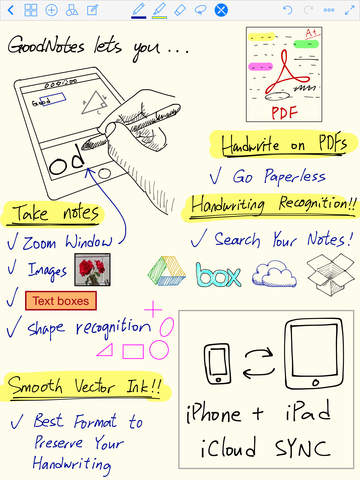 GoodNotes lets you ...
Good
od
A+
PDF
Handwrite on PDFs
✓ Go Paperless
Handwriting Recognition!!
✓ Search Your Notes!
Take notes
✓ Zoom Window
✓ Images
✓ Text boxes
✓ shape recognition
box
Smooth Vector Ink!!
✓ Best Format to
Preserve Your
Handwriting
iPhone + iPad
iCloud SYNC